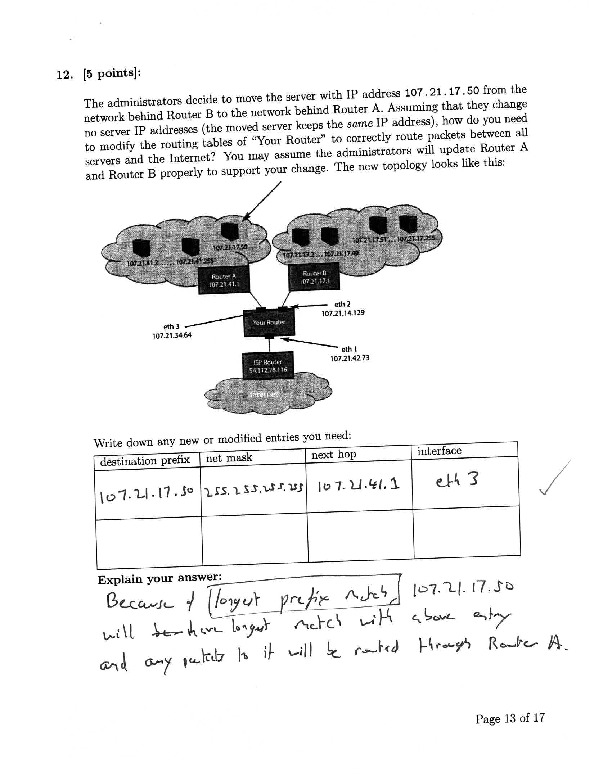 12. [5 points]:
The administrators decide to move the server with IP address 107.21.17.50 from the
network behind Router B to the network behind Router A. Assuming that they change
no server IP addresses (the moved server keeps the same IP address), how do you need
to modify the routing tables of "Your Router" to correctly route packets between all
servers and the Internet? You may assume the administrators will update Router A
and Router B properly to support your change. The new topology looks like this:
107.21.17.50
107.21.41.2 ... 107.21.41.255
107.21.17.2 ... 107.21.17.49
107.21.17.51 ... 107.21.17.255
Router A
107.21.41.1
Router B
107.21.17.1
eth 2
107.21.14.129
eth 3
107.21.34.64
Your Router
eth 1
107.21.42.73
ISP Router
Internet
Write down any new or modified entries you need:
destination prefix net mask next hop interface
107.21.17.50 255.255.255.255 107.21.41.1 eth 3
Explain your answer:
Because of longest prefix match, 107.21.17.50
will have longest match with above entry
and any packets to it will be routed through Router A.
Page 13 of 17